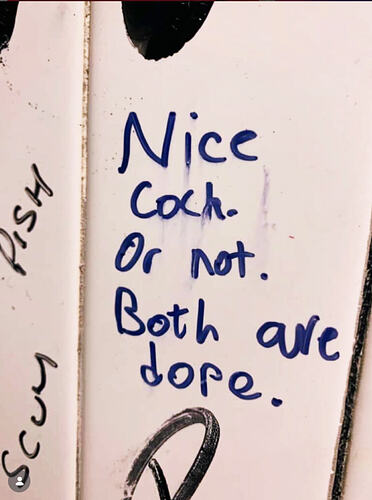 Nice
Cock.
Or not.
Both are
dope.
PISH
SCUM